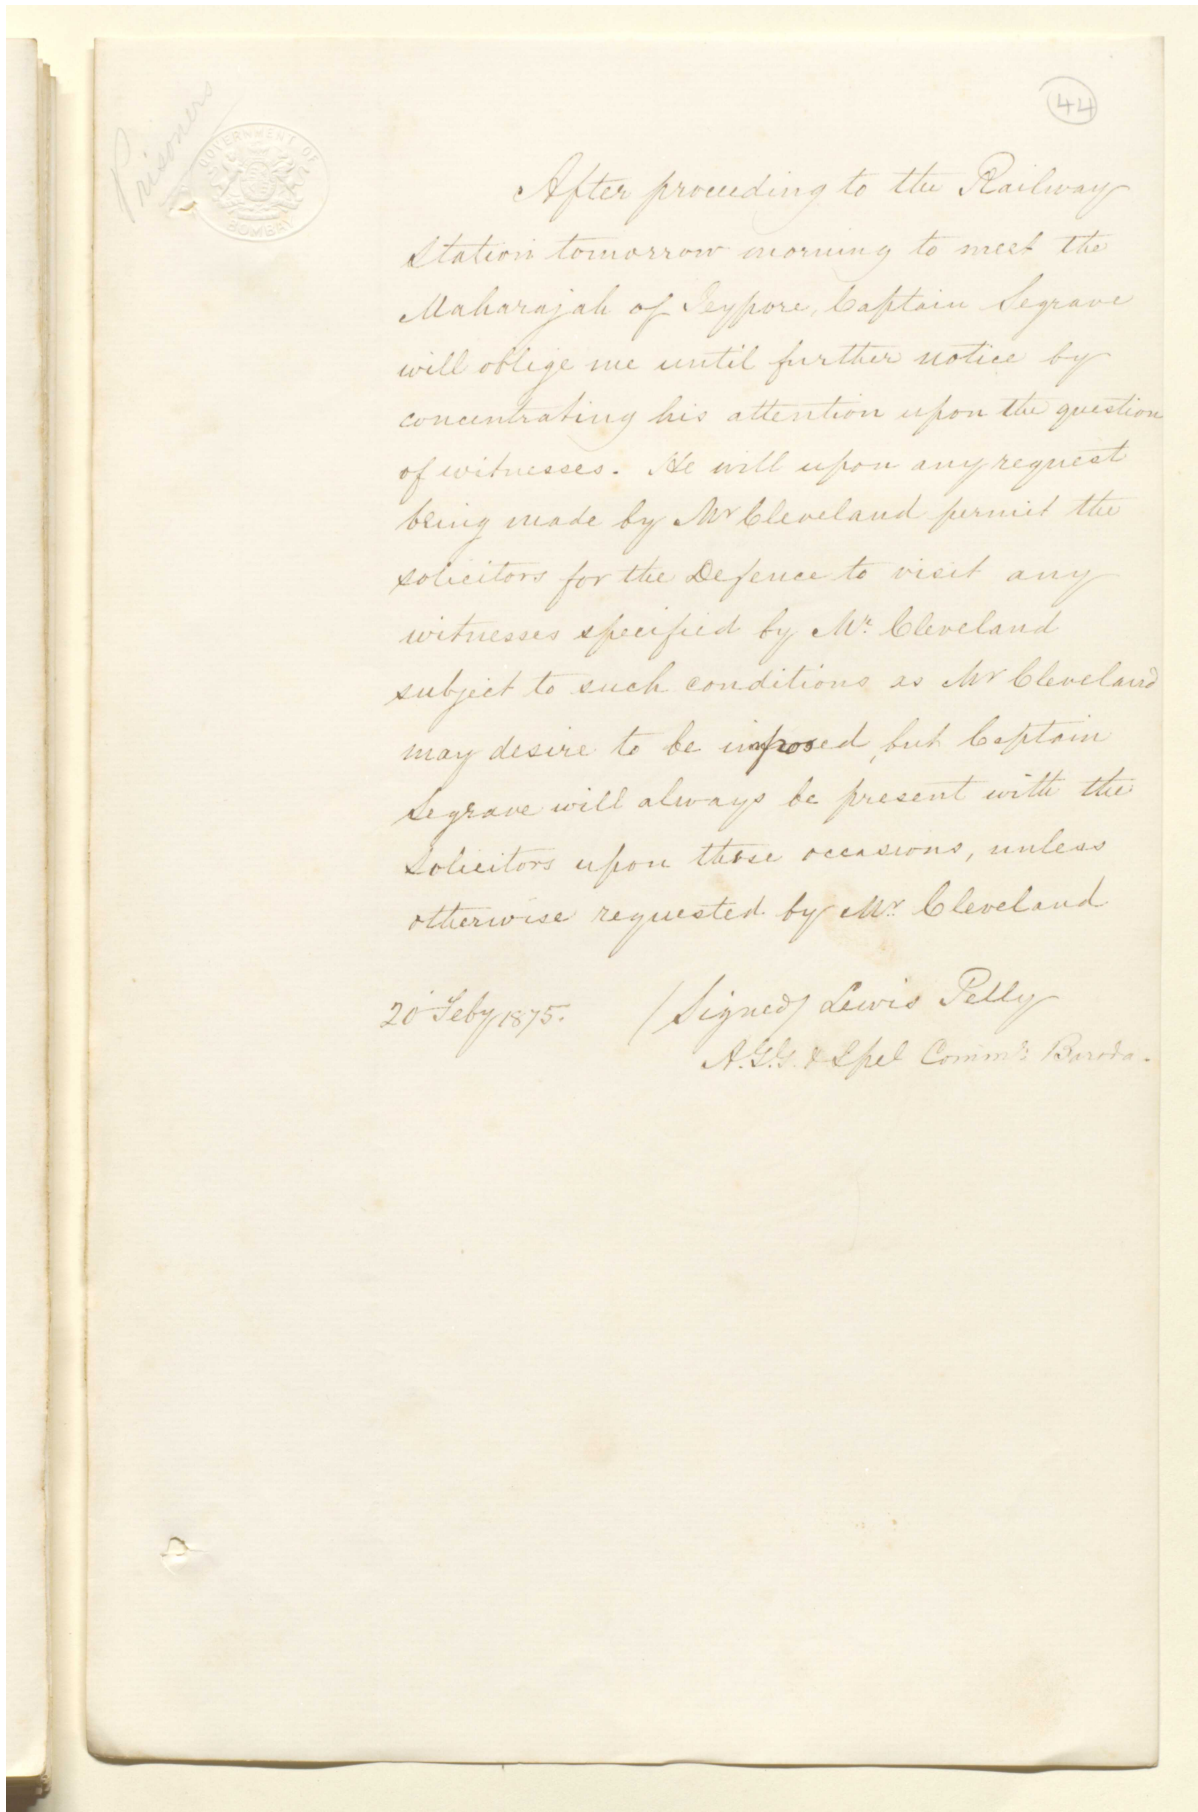 Prisoners
GOVERNMENT OF
BOMBAY
44
After proceeding to the Railway
Station tomorrow morning to meet the
Maharajah of Jeypore, Captain Segrave
will oblige me until further notice by
concentrating his attention upon the question
of witnesses. He will upon any request
being made by Mr Cleveland permit the
solicitors for the Defence to visit any
witnesses specified by Mr. Cleveland
subject to such conditions as Mr Cleveland
may desire to be imposed, but Captain
Segrave will always be present with the
Solicitors upon these occasions, unless
otherwise requested by Mr. Cleveland
20 Feby 1875.
(Signed) Lewis Pelly
A.G.G. & Spel Commr. Baroda.